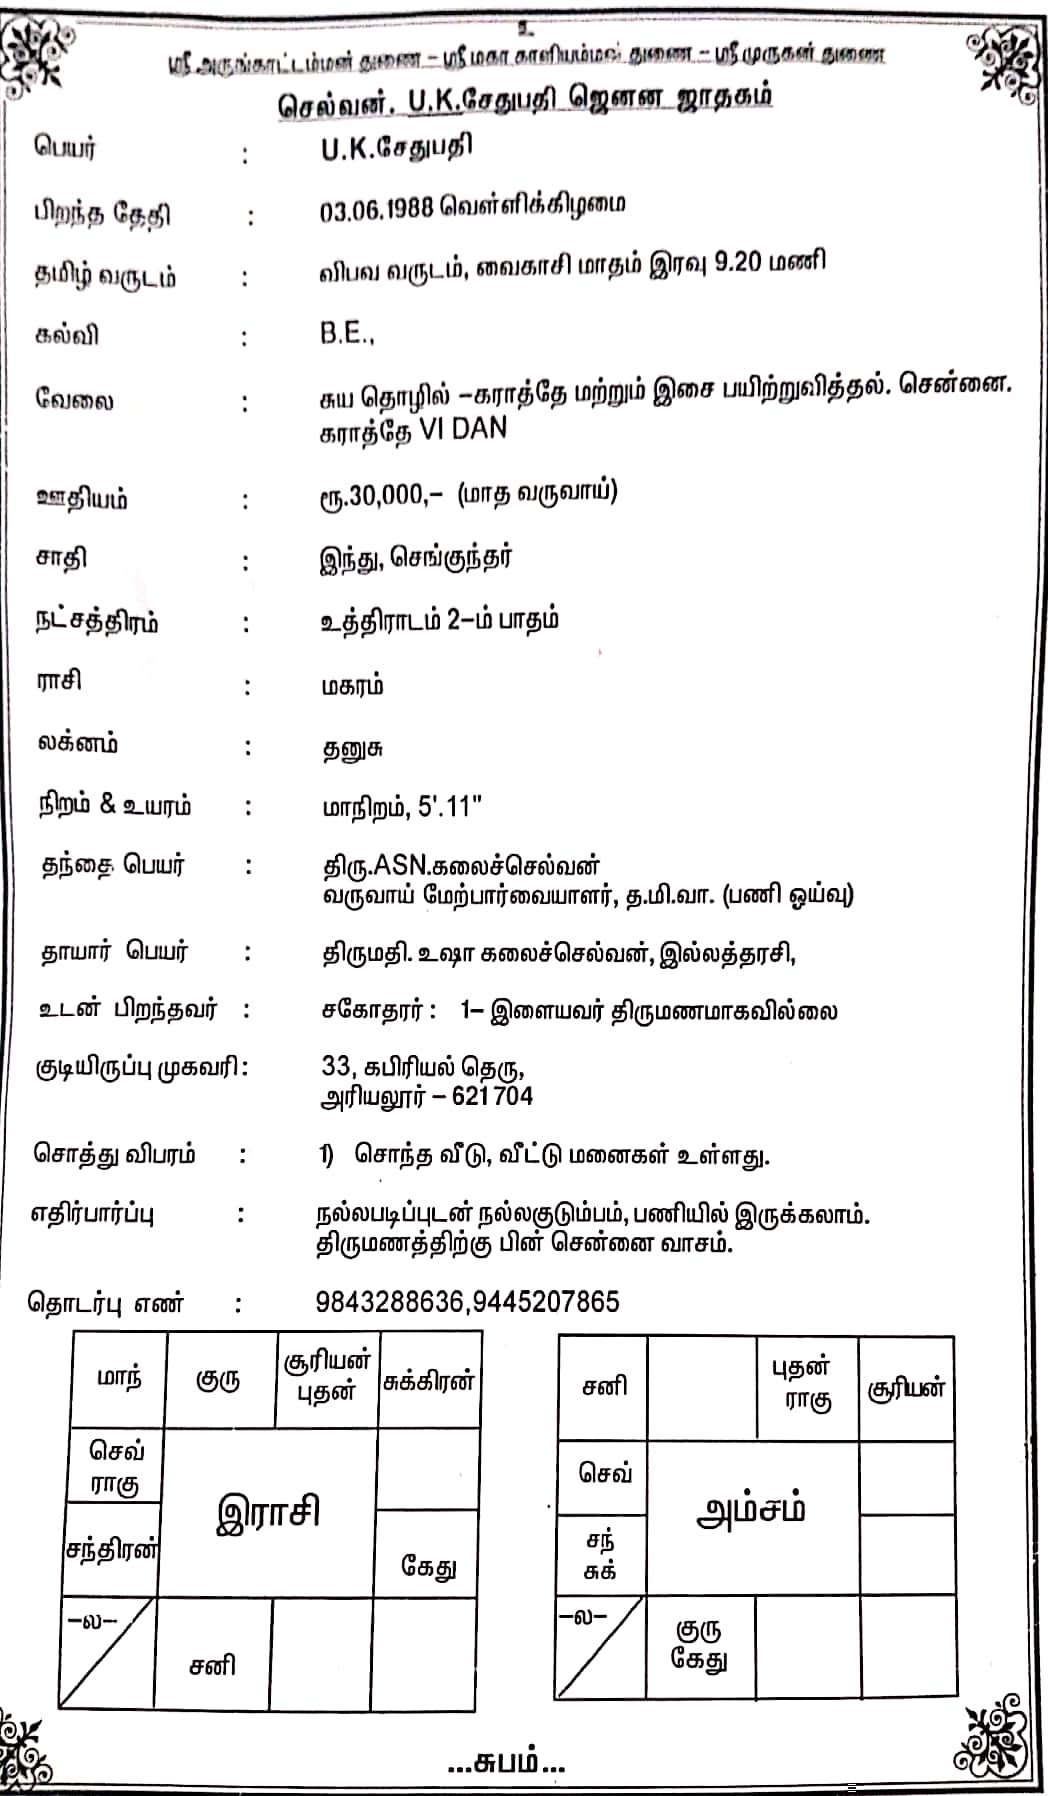 உ
ஸ்ரீ அருங்காட்டம்மன் துணை – ஸ்ரீ மகா காளியம்மன் துணை – ஸ்ரீ முருகன் துணை
செல்வன். U.K.சேதுபதி ஜெனன ஜாதகம்
பெயர் : U.K.சேதுபதி
பிறந்த தேதி : 03.06.1988 வெள்ளிக்கிழமை
தமிழ் வருடம் : விபவ வருடம், வைகாசி மாதம் இரவு 9.20 மணி
கல்வி : B.E.,
வேலை : சுய தொழில் –கராத்தே மற்றும் இசை பயிற்றுவித்தல். சென்னை.
கராத்தே VI DAN
ஊதியம் : ரூ.30,000,– (மாத வருவாய்)
சாதி : இந்து, செங்குந்தர்
நட்சத்திரம் : உத்திராடம் 2–ம் பாதம்
ராசி : மகரம்
லக்னம் : தனுசு
நிறம் & உயரம் : மாநிறம், 5'.11"
தந்தை பெயர் : திரு.ASN.கலைச்செல்வன்
வருவாய் மேற்பார்வையாளர், த.மி.வா. (பணி ஓய்வு)
தாயார் பெயர் : திருமதி. உஷா கலைச்செல்வன், இல்லத்தரசி,
உடன் பிறந்தவர் : சகோதரர் : 1– இளையவர் திருமணமாகவில்லை
குடியிருப்பு முகவரி : 33, கபிரியல் தெரு,
அரியலூர் – 621704
சொத்து விபரம் : 1) சொந்த வீடு, வீட்டு மனைகள் உள்ளது.
எதிர்பார்ப்பு : நல்லபடிப்புடன் நல்லகுடும்பம், பணியில் இருக்கலாம்.
திருமணத்திற்கு பின் சென்னை வாசம்.
தொடர்பு எண் : 9843288636,9445207865
மாந்
குரு
சூரியன்
புதன்
சுக்கிரன்
செவ்
ராகு
இராசி
சந்திரன்
கேது
–ல–
சனி
சனி
புதன்
ராகு
சூரியன்
செவ்
அம்சம்
சந்
சுக்
–ல–
குரு
கேது
...சுபம்...